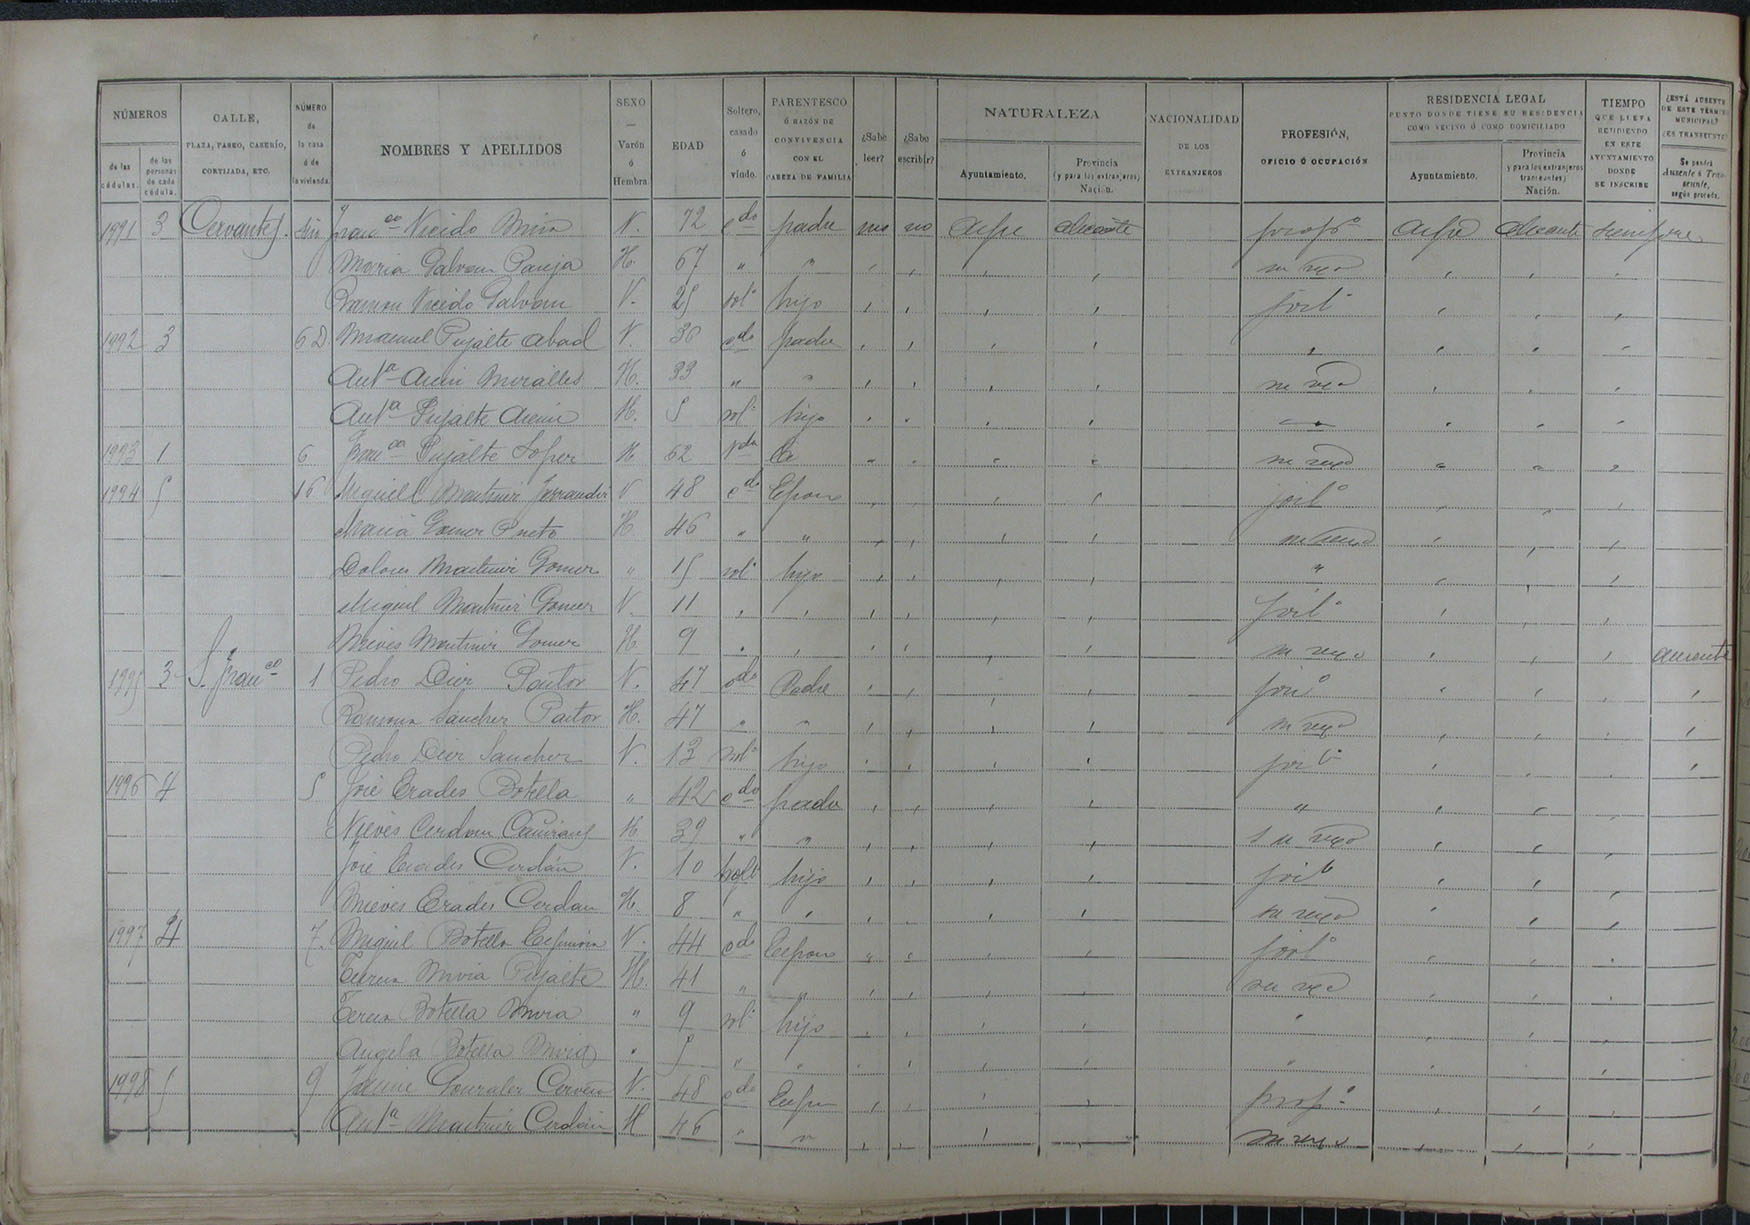 NÚMEROS
de las cédulas.
de las personas de cada cédula.
CALLE, PLAZA, PASEO, CASERÍO, CORTIJADA, ETC.
NÚMERO de la casa ó de la vivienda.
NOMBRES Y APELLIDOS
SEXO — Varón ó Hembra.
EDAD
Soltero, casado ó viudo.
PARENTESCO Ó RAZÓN DE CONVIVENCIA CON EL CABEZA DE FAMILIA
¿Sabe leer?
¿Sabe escribir?
NATURALEZA
Ayuntamiento.
Provincia (y para los extranjeros) Nación.
NACIONALIDAD DE LOS EXTRANJEROS
PROFESIÓN, OFICIO Ó OCUPACIÓN
RESIDENCIA LEGAL
PUNTO DONDE TIENE SU RESIDENCIA COMO VECINO Ó COMO DOMICILIADO
Ayuntamiento.
Provincia y para los extranjeros transeuntes) Nación.
TIEMPO QUE LLEVA RESIDIENDO EN ESTE AYUNTAMIENTO DONDE SE INSCRIBE
¿ESTÁ AUSENTE DE ESTE TÉRMINO MUNICIPAL?
¿ES TRANSEUNTE?
Se pondrá Ausente ó Transeunte, según proceda.
1991 3 Cervantes. Franco Vicido Mira V. 72 cdo padre no no Aspe Alicante propo Aspe Alicante siempre
Maria Galvan Pareja H. 67 " " su sexo
Ramon Vicido Galvan V. 25 solo hijo jorlo
1992 3 6D. Manuel Pujalte Abad V. 36 cdo padre
Anta Miralles H. 33 " "
Anta Pujalte H. 5 solo hijo
1993 1 6 Franca Pujalte Lopez H 62 Vda su sexo
1994 5 16 Miguel Martinez V 48 cdo Esposo jorlo
Maria Gomez Prieto H 46 " " su sexo
Dolores Martinez Gomez " 15 solo hijo "
Miguel Martinez Gomez V. 11 jorlo
Nieves Martinez Gomez H. 9 su sexo ausente
1995 3 S. Franco 1 Pedro Diez Pastor V. 47 cdo Padre
Ramona Sanchez Pastor H. 47 " " su sexo
Pedro Diez Sanchez V. 13 solo hijo
1996 4 5 José Erades Botella " 42 cdo padre "
Nieves Cerdan H 39 " " su sexo
José Erades Cerdán V. 10 solto hijo
Nieves Erades Cerdan H. 8 " su sexo
1997 4 7. Miguel Botella V. 44 cdo Esposo jorlo
Teresa Mira Pujalte H. 41 " "
Teresa Botella Mira " 9 solo hijo "
Angela Botella Mira " 5 " " "
1998 5 9 Jaime Gonzalez V. 48 cdo propo
Anta Martinez Cerdán H 46 " " su sexo